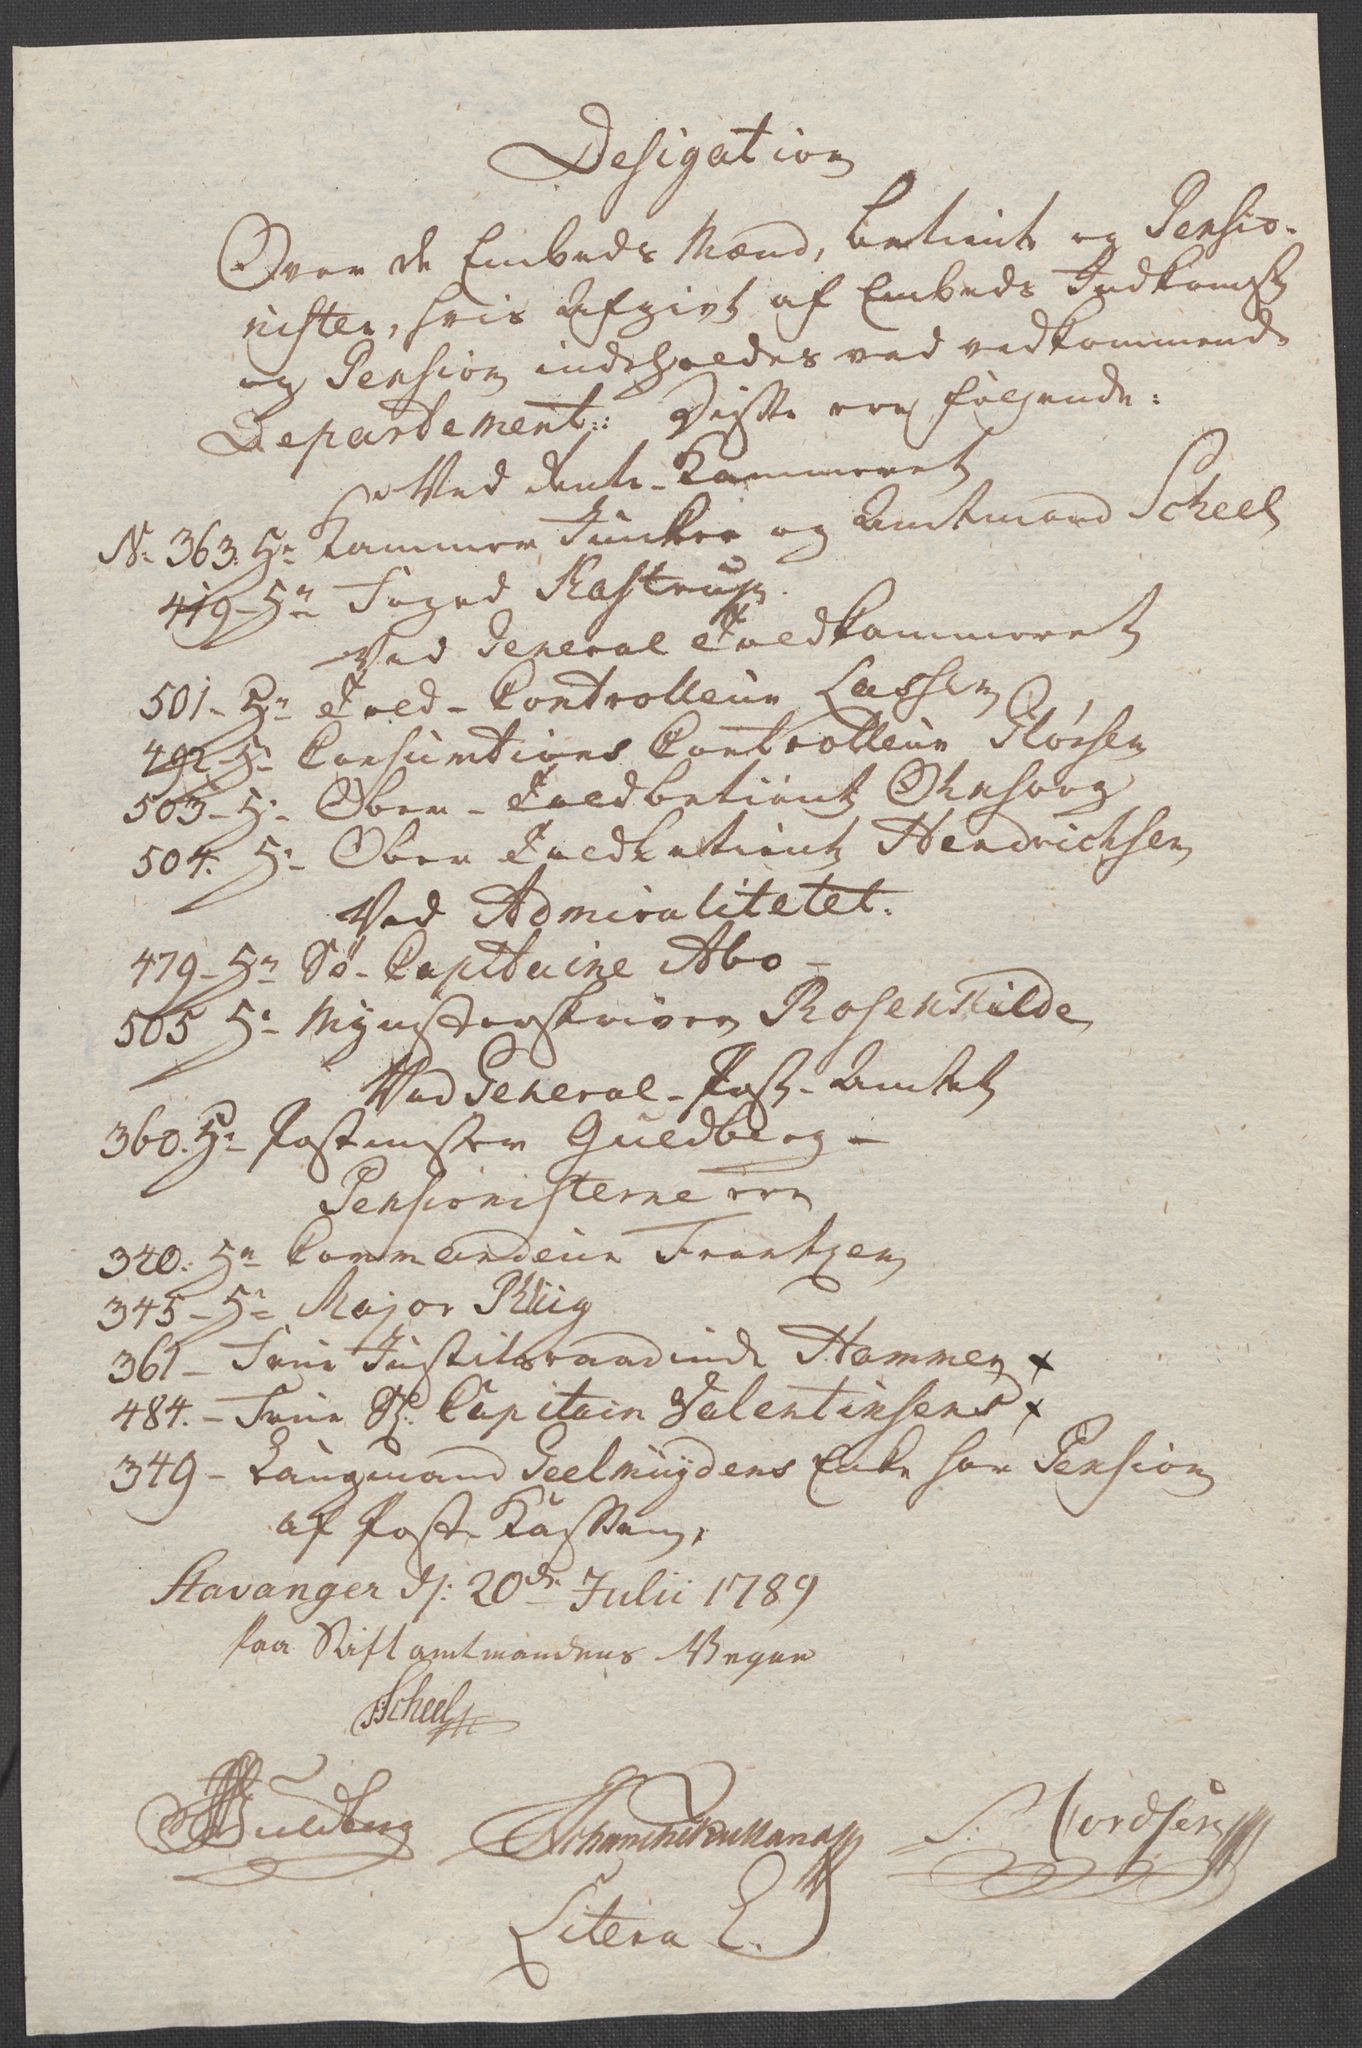 Desigation
Over de Embeds Mænd, betiente og Pensio-
nister, hvis Afgivt af Embeds Indkomst
og Pension indeholdes ved vedkommende
Departement: Disse ere følgende:
Ved Rente-Kammeret
N: 363. Hr Kammer Junker og Amtmand Scheel
419 - Hr Foged Kastrup
Ved General Toldkammeret
501 - Hr Told-Controlleur Lassen
492 - Hr Consumtions Controlleur Glørsen
503 - Hr Ober-Toldbetient Ohnsorg
504. Hr Ober Toldbetient Hendrichsen
Ved Admiralitetet.
479 - Hr Sø-Capitaine Abo -
505 Hr Mynsterskriver Rosenkilde
Ved General-Post-Amtet
360. Hr Postmester Guldberg -
Pensionisterne ere
340. Hr Commandeur Frantzen
345 - Hr Major Krüg
361 - Frue Justitsraadinde Hammer x
484. - Frue Capitain Valentinsens x
349 - Laugmand Geelmuydens Enke har Pension
af Post-Kassen,
Stavanger d: 20de Julii 1789
Paa Stiftamtmandens Vegne
Scheel
Guldberg
S. Nordsen
Litera E.